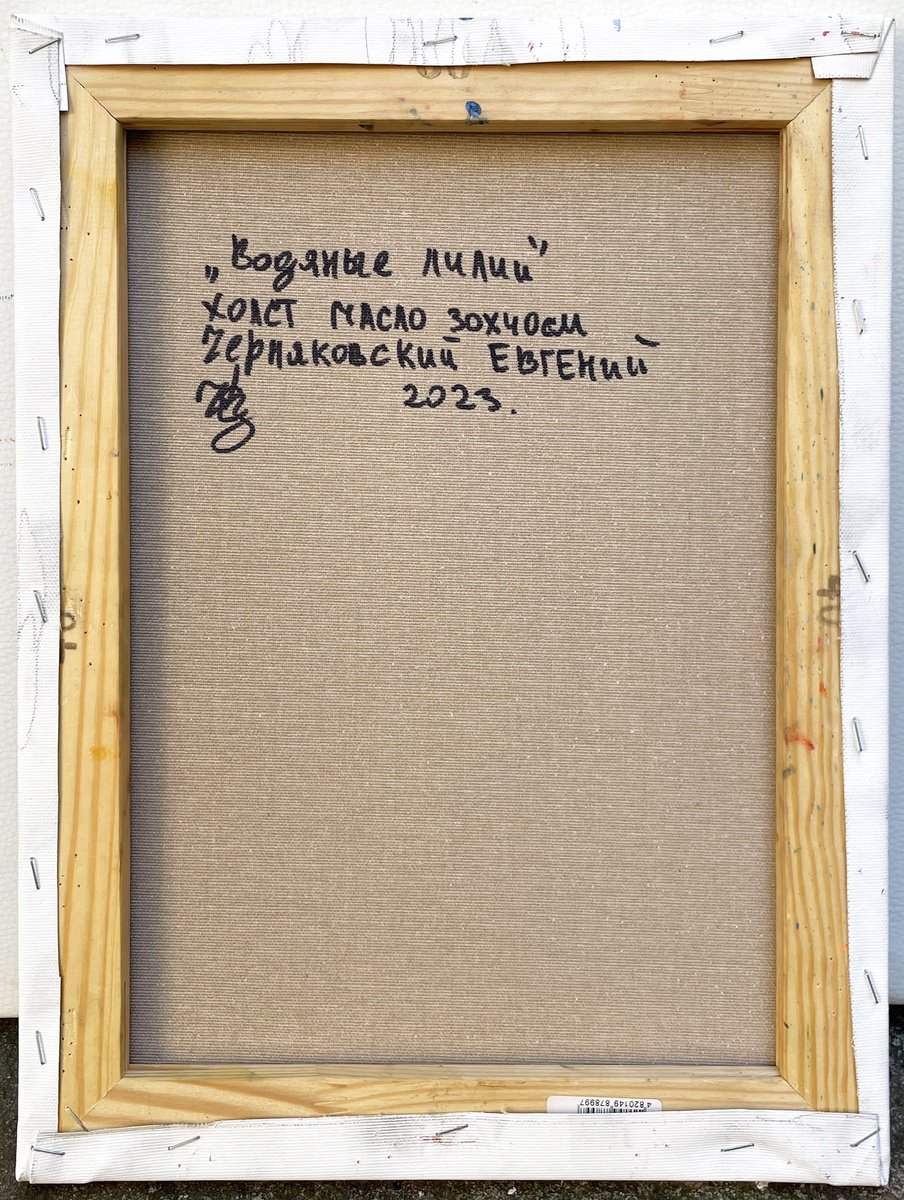 „Водяные лилии"
холст масло 30х40см
Черняковский Евгений
2023.
4 820149 878997